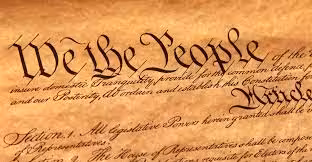 We the People of the
insure domestic Tranquility, provide for the common defence,
and our Posterity, do ordain and establish this Constitution for
Article
Section. 1. All legislative Powers herein granted shall be
Representatives.
Section. 2. The House of Representatives shall be composed
for Electors of the